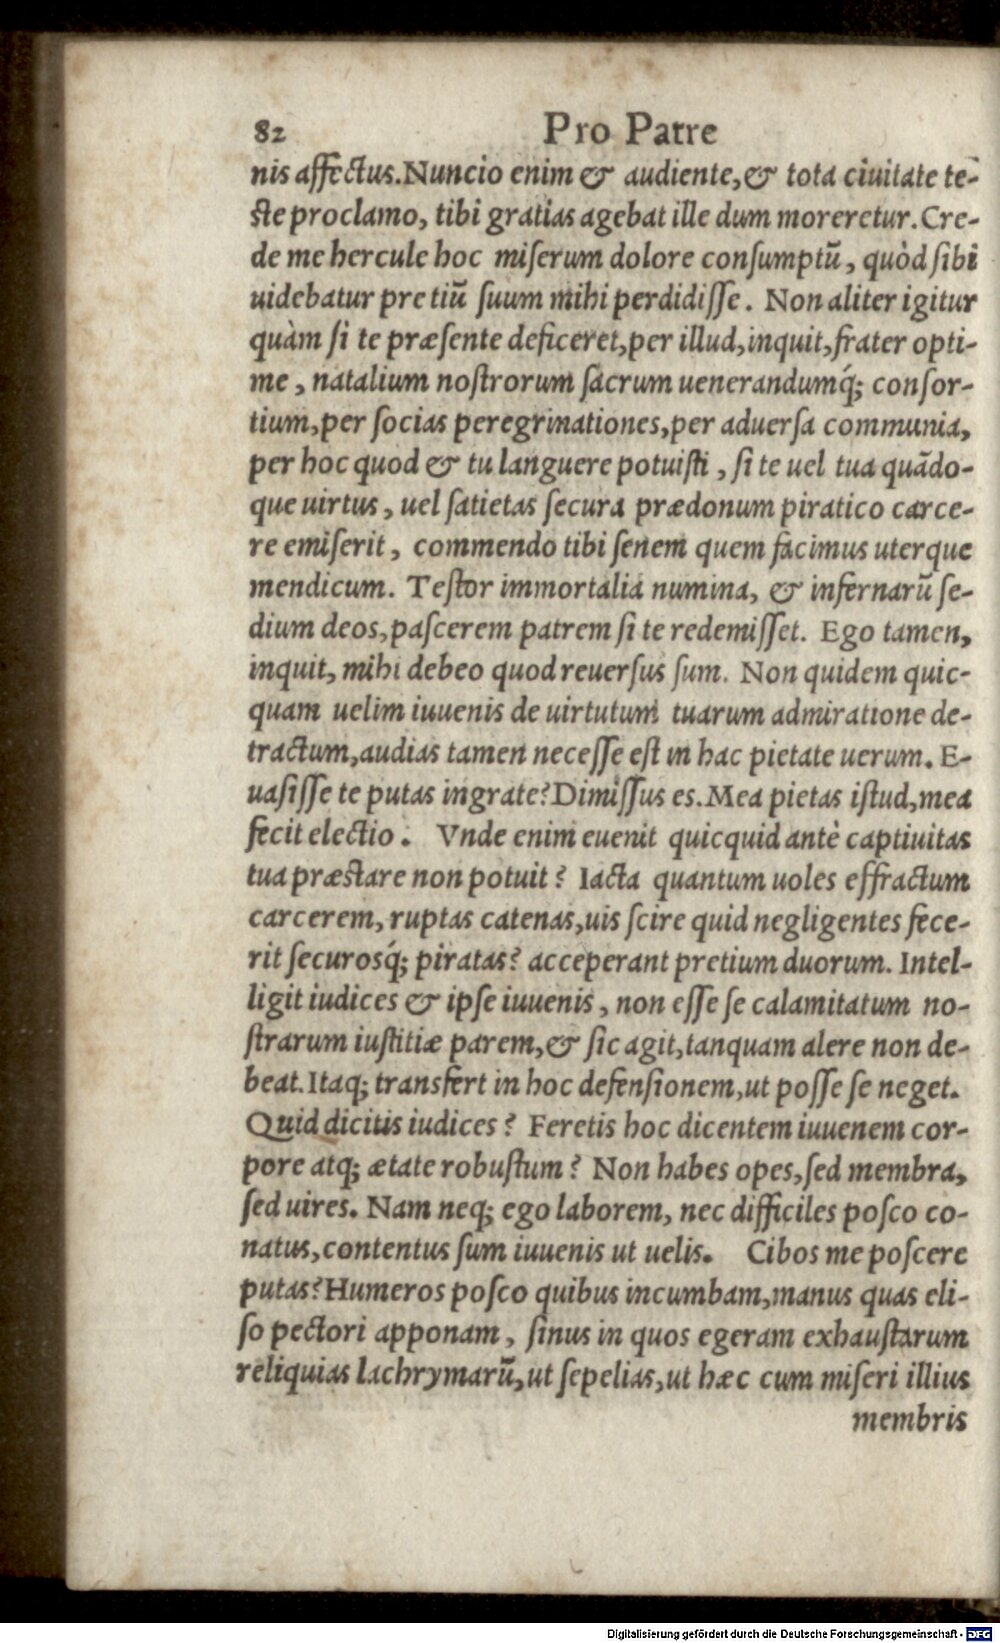 82 Pro Patre
nis affectus. Nuncio enim & audiente, & tota ciuitate te-
ste proclamo, tibi gratias agebat ille dum moreretur. Cre-
de me hercule hoc miserum dolore consumptū, quòd sibi
uidebatur pretiū suum mihi perdidisse. Non aliter igitur
quàm si te præsente deficeret, per illud, inquit, frater opti-
me, natalium nostrorum sacrum uenerandumq́; consor-
tium, per socias peregrinationes, per aduersa communia,
per hoc quod & tu languere potuisti, si te uel tua quādo-
que uirtus, uel satietas secura prædonum piratico carce-
re emiserit, commendo tibi senem quem facimus uterque
mendicum. Testor immortalia numina, & infernarū se-
dium deos, pascerem patrem si te redemisset. Ego tamen,
inquit, mihi debeo quod reuersus sum. Non quidem quic-
quam uelim iuuenis de uirtutum tuarum admiratione de-
tractum, audias tamen necesse est in hac pietate uerum. E-
uasisse te putas ingrate? Dimissus es. Mea pietas istud, mea
fecit electio. Vnde enim euenit quicquid antè captiuitas
tua præstare non potuit? Iacta quantum uoles effractum
carcerem, ruptas catenas, uis scire quid negligentes fece-
rit securosq́; piratas? acceperant pretium duorum. Intel-
ligit iudices & ipse iuuenis, non esse se calamitatum no-
strarum iustitiæ parem, & sic agit, tanquam alere non de-
beat. Itaq; transfert in hoc defensionem, ut posse se neget.
Quid dicitis iudices? Feretis hoc dicentem iuuenem cor-
pore atq; ætate robustum? Non habes opes, sed membra,
sed uires. Nam neq; ego laborem, nec difficiles posco co-
natus, contentus sum iuuenis ut uelis. Cibos me poscere
putas? Humeros posco quibus incumbam, manus quas eli-
so pectori apponam, sinus in quos egeram exhaustarum
reliquias lachrymarū, ut sepelias, ut hæc cum miseri illius
membris
Digitalisierung gefördert durch die Deutsche Forschungsgemeinschaft - DFG